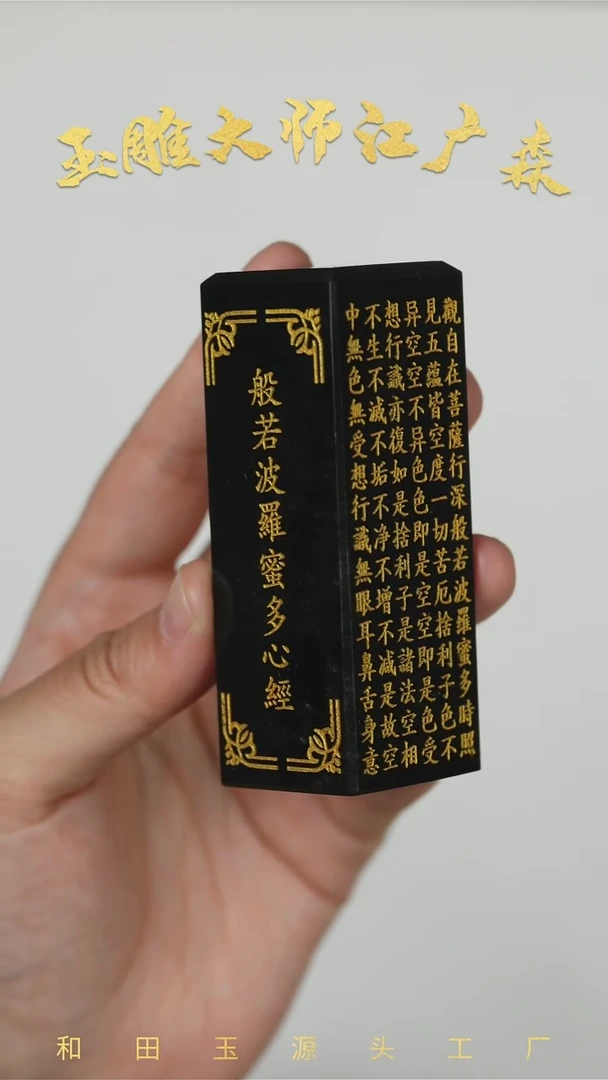 玉雕大师江广森
般若波羅蜜多心經
觀自在菩薩行深般若波羅蜜多時照
見五蘊皆空度一切苦厄捨利子色不
异空空不异色色即是空空即是色受
想行識亦復如是捨利子是諸法空相
不生不滅不垢不净不增不减是故空
中無色無受想行識無眼耳鼻舌身意
和田玉源头工厂